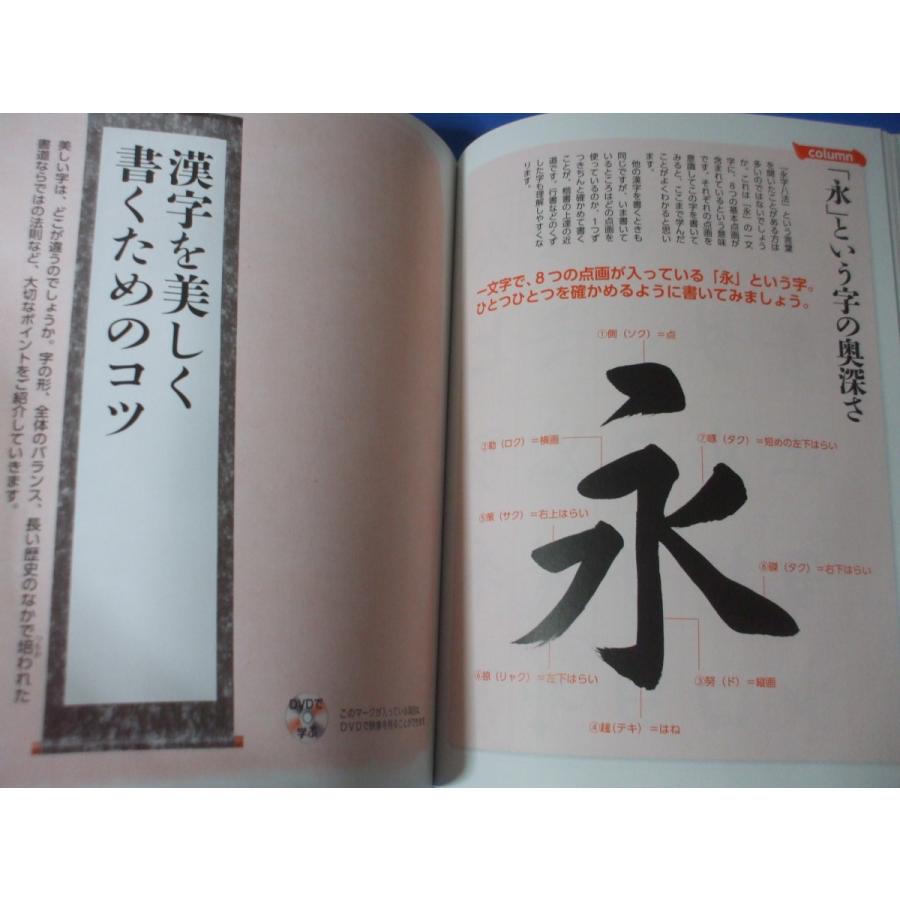 column
「永」という字の奥深さ
「永字八法」という言葉
を聞いたことがある方は
多いのではないでしょう
か。これは「永」の一文
字に、8つの基本点画が
含まれているという意味
です。それぞれの点画を
意識してこの字を書いて
みると、ここまで学んだ
ことがよくわかると思い
ます。
他の漢字を書くときも
同じですが、いま書いて
いるところはどの点画を
使っているのか、1つず
つきちんと確かめて書く
ことが、楷書の上達の近
道です。行書などのくず
した字も理解しやすくな
ります。
一文字で、8つの点画が入っている「永」という字。
ひとつひとつを確かめるように書いてみましょう。
①側(ソク)=点
②勒(ロク)=横画
⑦啄(タク)=短めの左下はらい
⑤策(サク)=右上はらい
永
⑧磔(タク)=右下はらい
⑥掠(リャク)=左下はらい
③努(ド)=縦画
④趯(テキ)=はね
漢字を美しく
書くためのコツ
美しい字は、どこが違うのでしょうか。字の形、全体のバランス、長い歴史のなかで培われた
書道ならではの法則など、大切なポイントをご紹介していきます。
DVDで
学ぶ
このマークが入っている項目は
DVDで映像を見ることができます